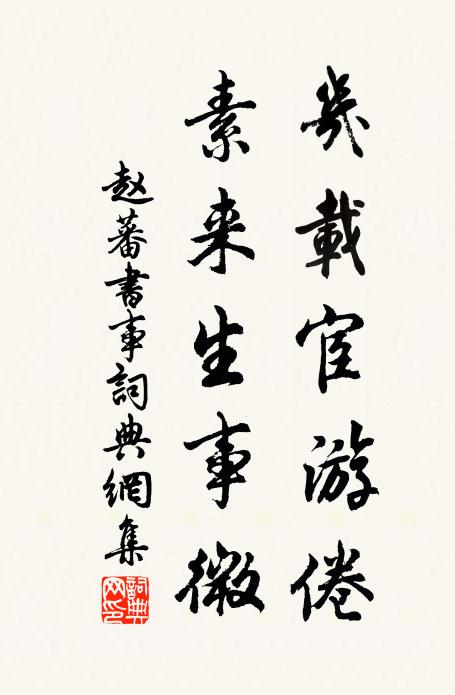 幾載宦游倦
素来生事微
赵蕃書事詞典網集
詞典网印